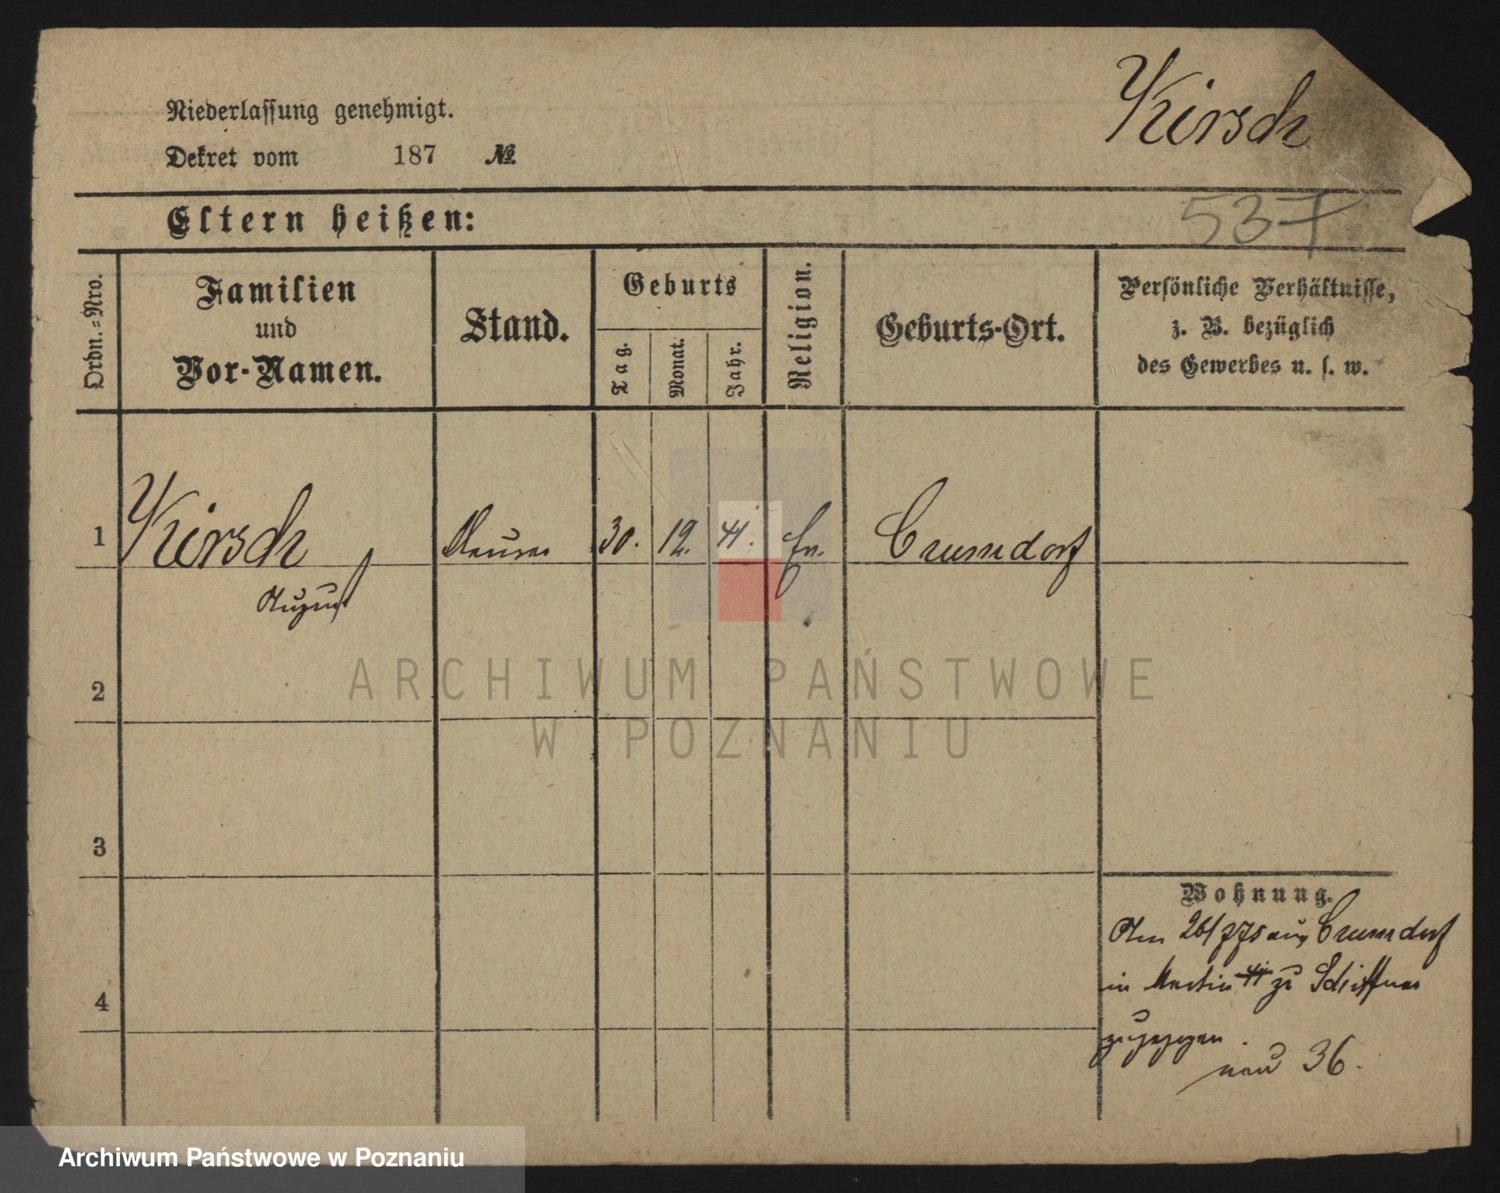 Kirsch
Niederlassung genehmigt.
Dekret vom 187 №
537
Eltern heißen:
Ordn.-Nro.
Familien
und
Vor-Namen.
Stand.
Geburts
Tag.
Monat.
Jahr.
Religion.
Geburts-Ort.
Persönliche Verhältnisse,
z. B. bezüglich
des Gewerbes u. s. w.
1 Kirsch Maurer 30. 12. 41. Ev. Crumdorf
August
2
3
4
Wohnung.
Am 26/7 75 aus Crumdorf
in Martin 41 zu Schiffner
zugezogen.
neu 36.
ARCHIWUM PAŃSTWOWE
W POZNANIU
Archiwum Państwowe w Poznaniu